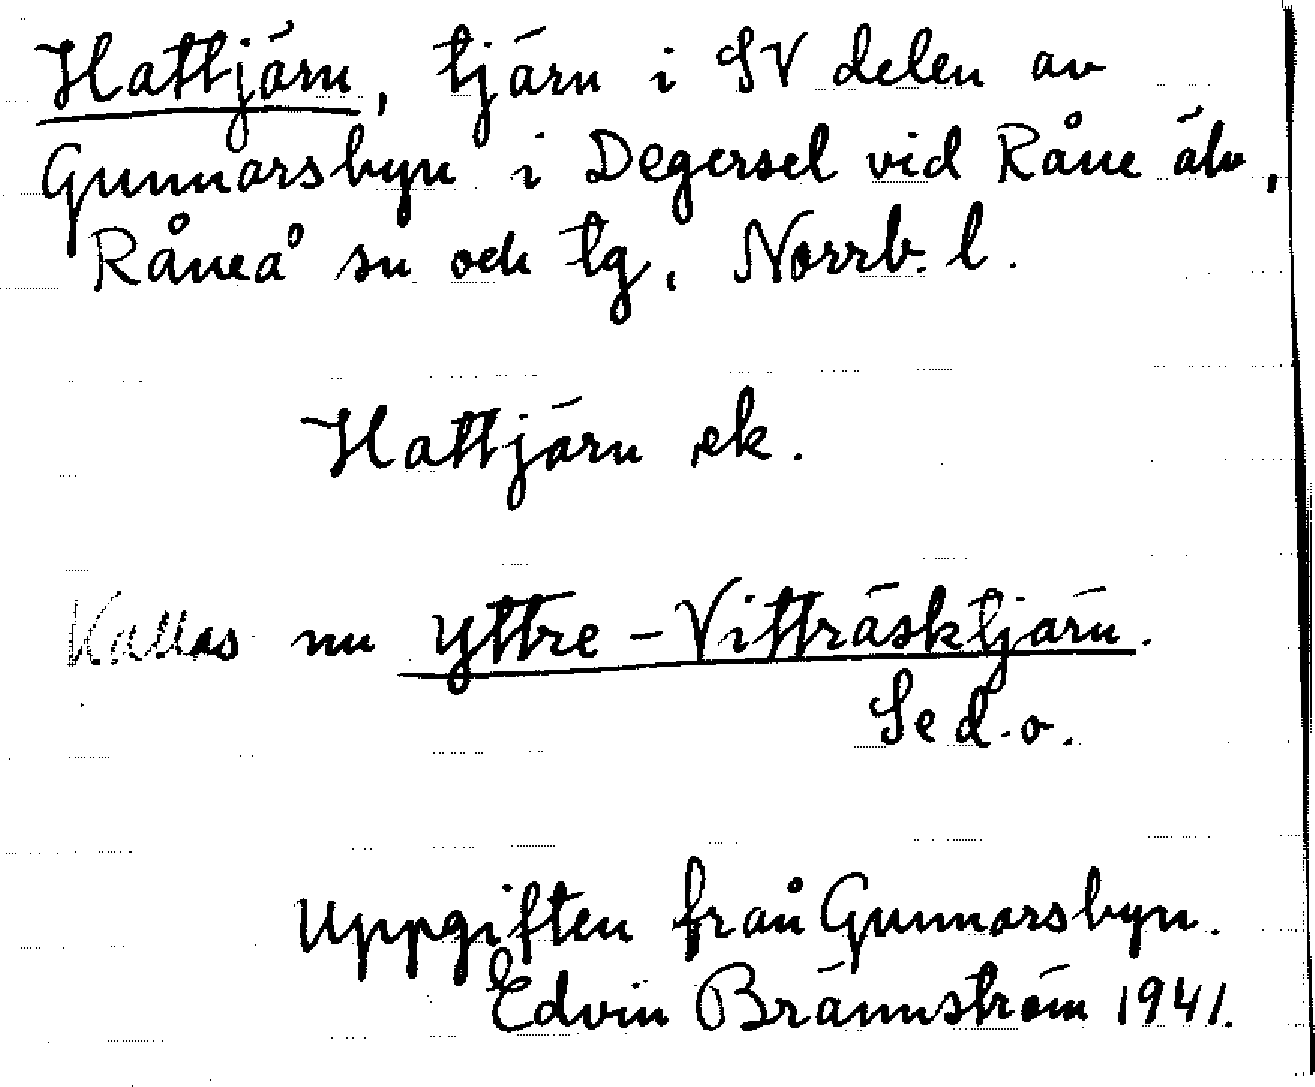 Hattjärn, tjärn i SV delen av
Gunnarsbyn i Degersel vid Råne älv,
Råneå sn och tg, Norrb. l.
Hattjärn ek.
Kallas nu Yttre-Vitträsktjärn.
Se d.o.
Uppgiften från Gunnarsbyn.
Edvin Brännström 1941.